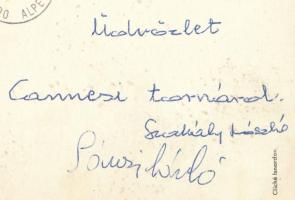 ALPE
Üdvözlet
Cannesi tornáról.
Szathály László
Cliché Isnardon